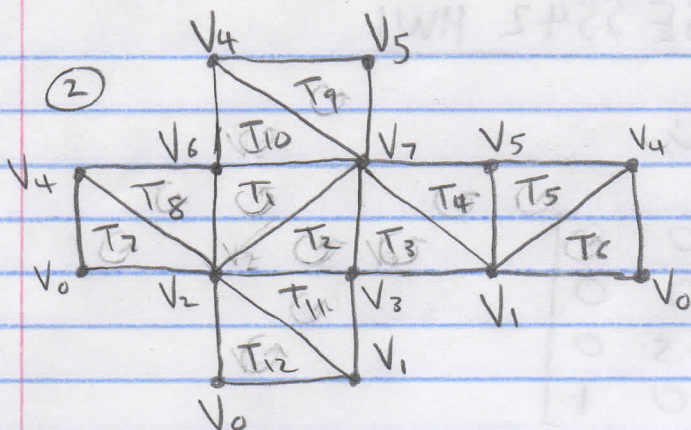 V4 V5
2
T9
T10
V6 V7 V5 V4
V4
T8 T1 T4 T5
T7 T2 T3 T6
V0 V2 V3 V1 V0
T11
T12 V1
V0